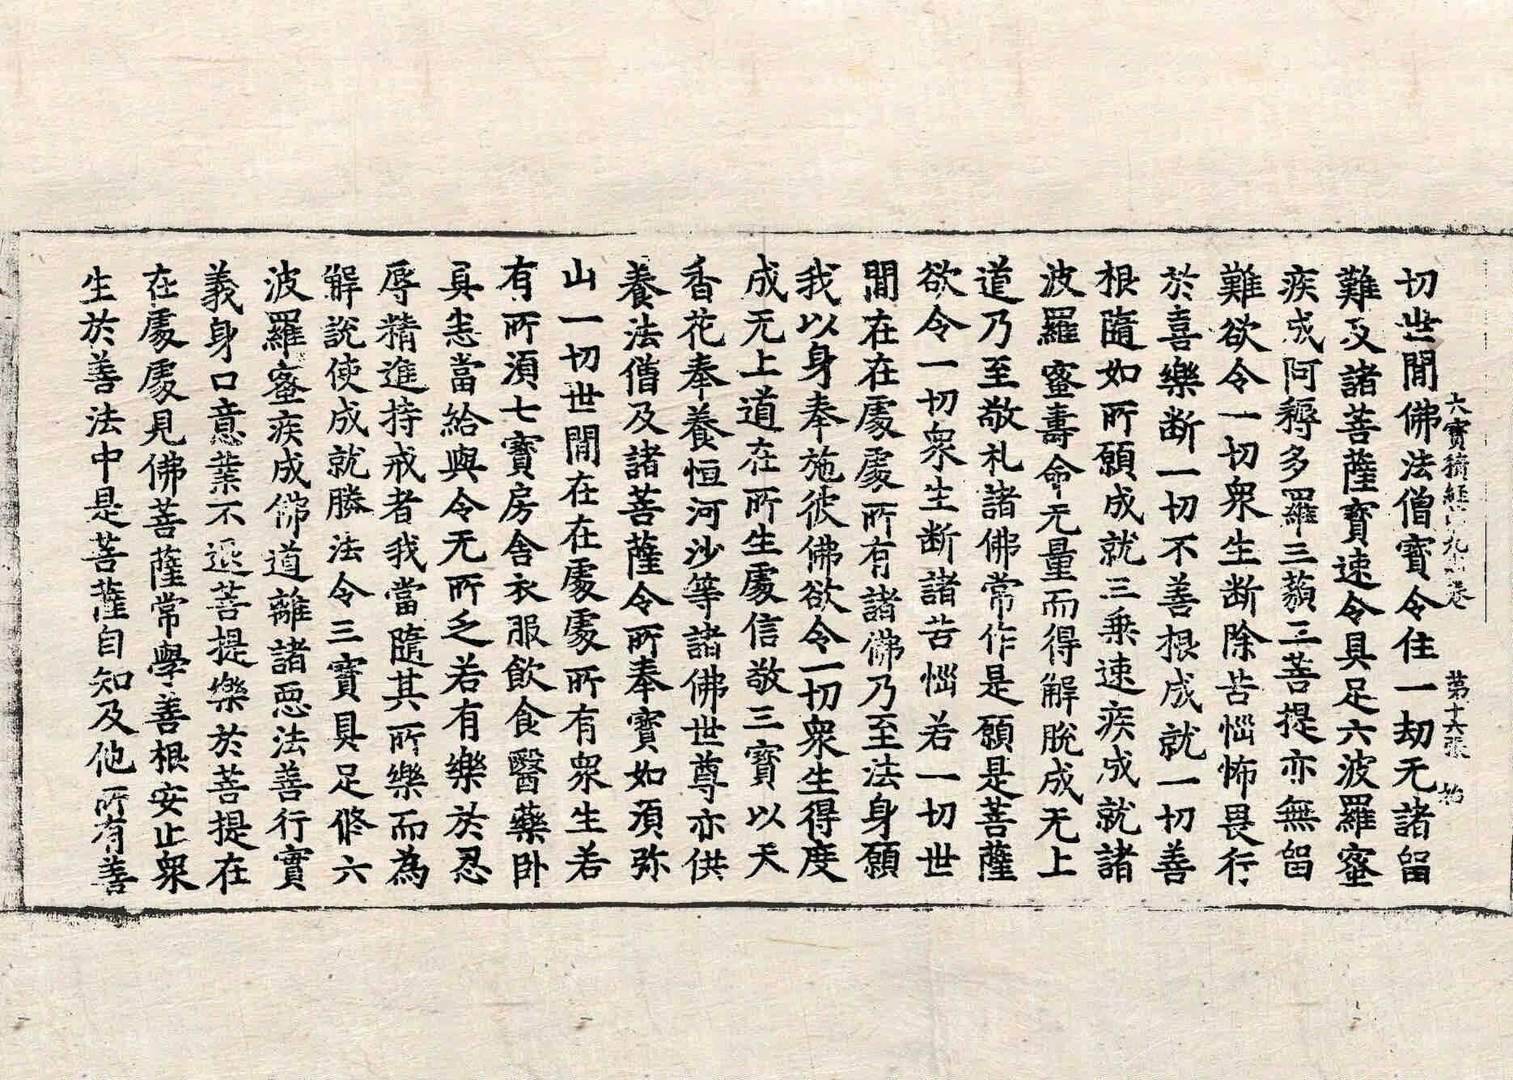 大寶積經 九 卷 第十六張 始
切世閒佛法僧寶令住一劫无諸留
難及諸菩薩寶速令具足六波羅蜜
疾成阿耨多羅三藐三菩提亦無留
難欲令一切衆生断除苦惱怖畏行
於喜樂断一切不善根成就一切善
根隨如所願成就三乗速疾成就諸
波羅蜜壽命无量而得解脫成无上
道乃至敬礼諸佛常作是願是菩薩
欲令一切衆生断諸苦惱若一切世
閒在在處處所有諸佛乃至法身願
我以身奉施彼佛欲令一切衆生得度
成无上道在所生處信敬三寶以天
香花奉養恒河沙等諸佛世尊亦供
養法僧及諸菩薩令所奉寶如須弥
山一切世閒在在處處所有衆生若
有所須七寶房舍衣服飲食醫藥卧
具悉當給與令无所乏若有樂於忍
辱精進持戒者我當隨其所樂而為
解說使成就勝法令三寶具足修六
波羅蜜疾成佛道離諸惡法善行實
義身口意業不退菩提樂於菩提在
在處處見佛菩薩常學善根安止衆
生於善法中是菩薩自知及他所有善